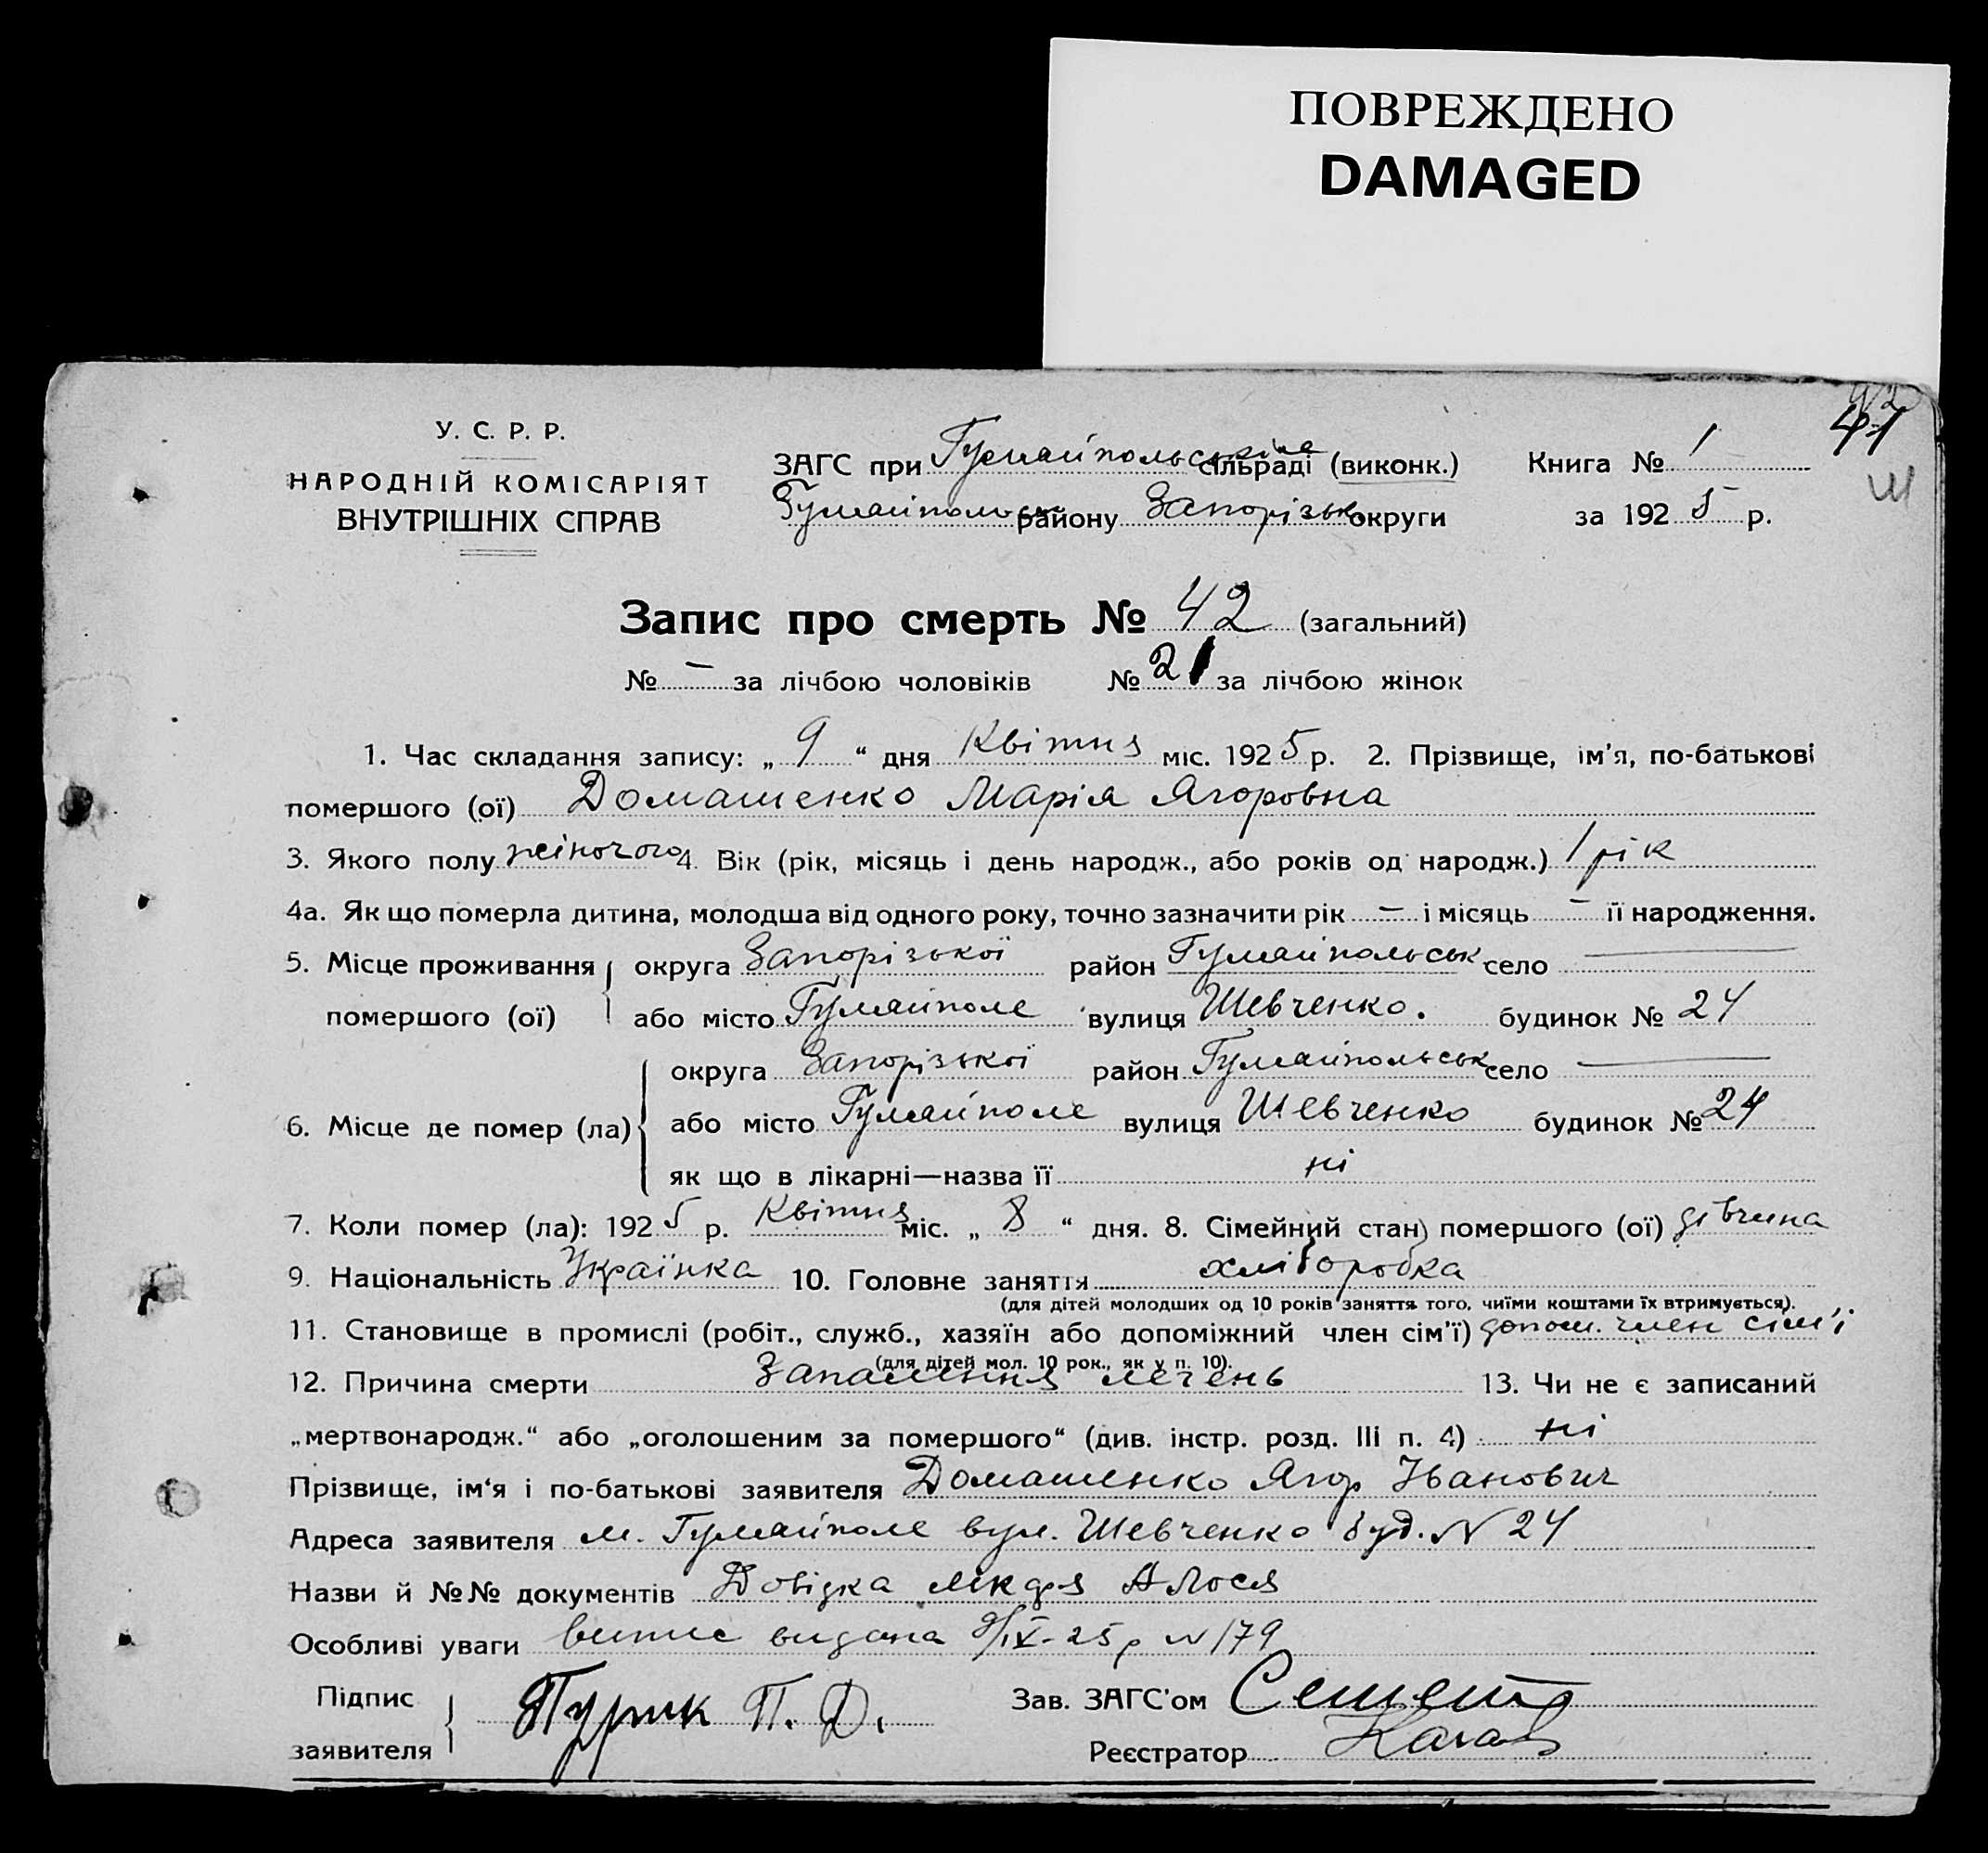 ПОВРЕЖДЕНО
DAMAGED
У. С. Р. Р.
НАРОДНІЙ КОМІСАРІЯТ
ВНУТРІШНІХ СПРАВ
ЗАГС при Гумайпольськім сільраді (виконк.) Книга № 1
Гумайпольськ району Запорізьк. округи за 1925 р.
41
Запис про смерть № 42 (загальний)
№ – за лічбою чоловіків № 21 за лічбою жінок
1. Час складання запису: „ 9 “ дня Квітня міс. 1925 р. 2. Прізвище, ім'я, по-батькові
помершого (ої) Домашенко Марія Ягоровна
3. Якого полу жіночого 4. Вік (рік, місяць і день народж., або років од народж.) 1 рік
4а. Як що померла дитина, молодша від одного року, точно зазначити рік – і місяць – її народження.
5. Місце проживання округа Запорізької район Гумайпольськ село —
помершого (ої) або місто Гумайполе вулиця Шевченко. будинок № 24
округа Запорізької район Гумайпольськ село —
6. Місце де помер (ла) або місто Гумайполе вулиця Шевченко будинок № 24
як що в лікарні—назва її ні
7. Коли помер (ла): 1925 р. Квітня міс. „ 8 “ дня. 8. Сімейний стан помершого (ої) дівчина
9. Національність Українка 10. Головне заняття хліборобка
(для дітей молодших од 10 років заняття того, чиїми коштами їх втримується).
11. Становище в промислі (робіт., служб., хазяїн або допоміжний член сім'ї) допом. член сім'ї
(для дітей мол. 10 рок., як у п. 10).
12. Причина смерти Запалення легень 13. Чи не є записаний
„мертвонародж.“ або „оголошеним за помершого“ (див. інстр. розд. III п. 4) ні
Прізвище, ім‘я і по-батькові заявителя Домашенко Ягор Іванович
Адреса заявителя м. Гумайполе вул. Шевченко буд. N 24
Назви й №№ документів Довідка лікаря
Особливі уваги випис видана 9/IV-25р N 179
Підпис
заявителя Турик П. Д.
Зав. ЗАГС'ом
Реєстратор